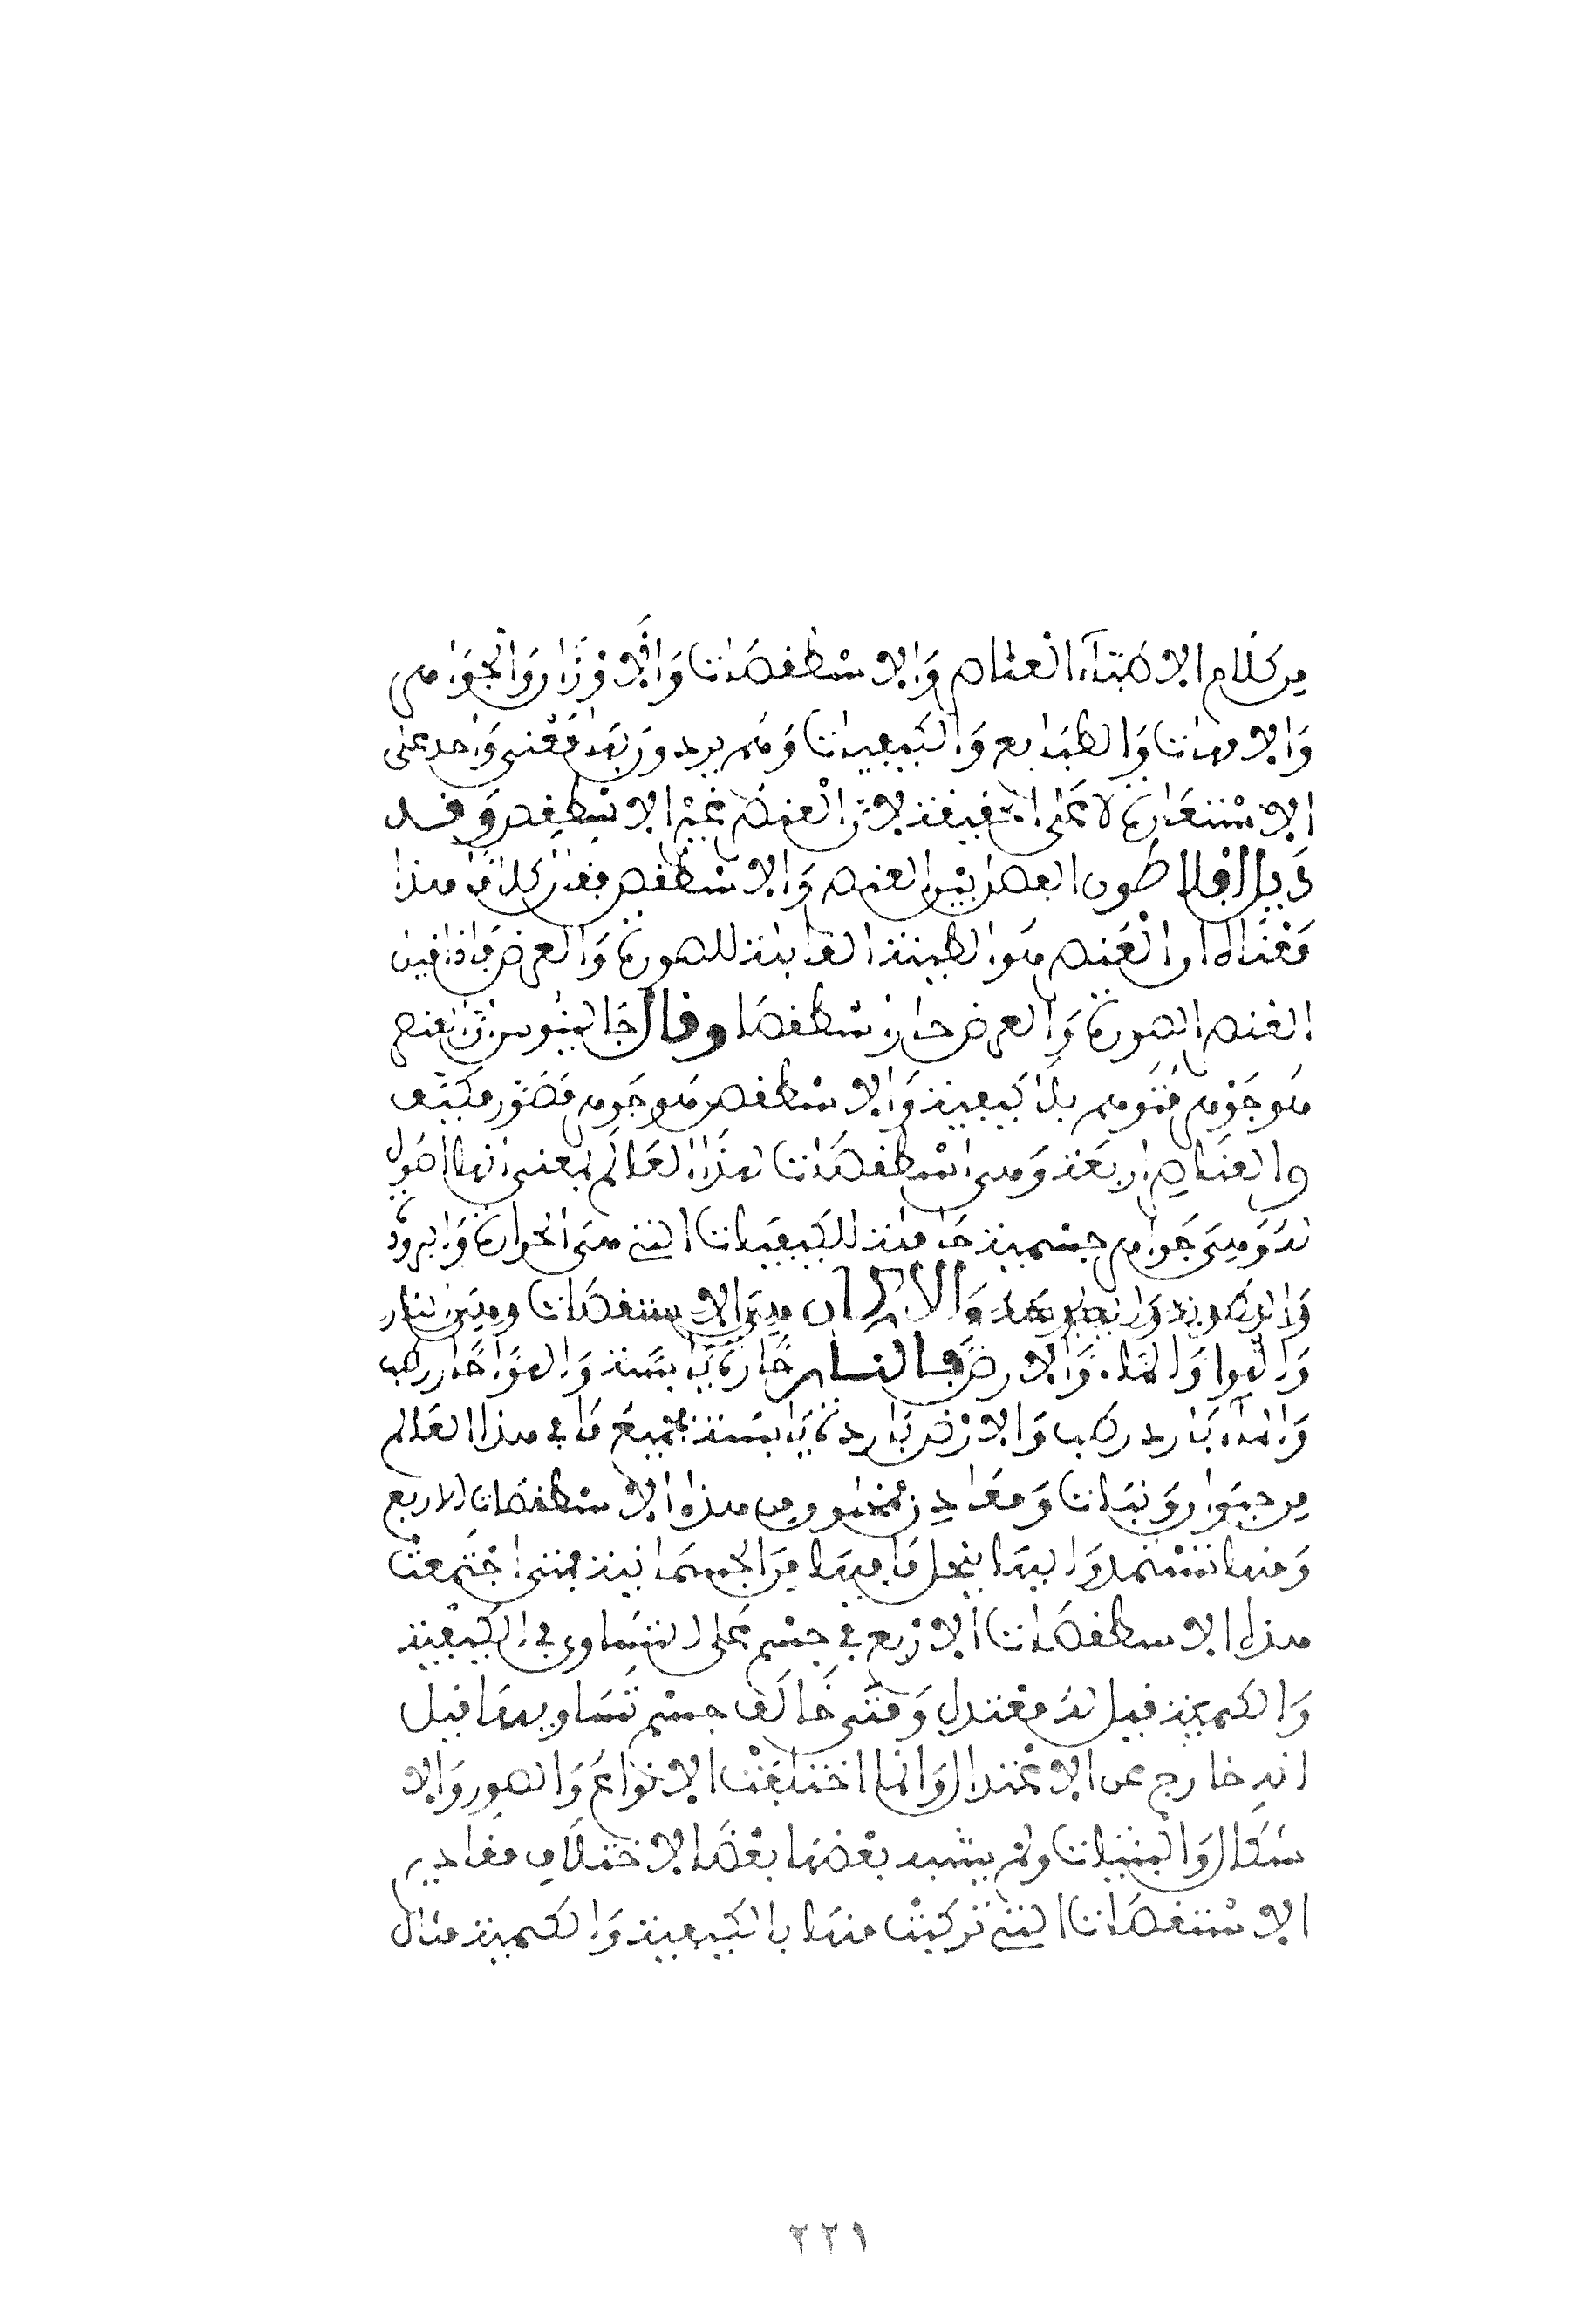 من كلام الاطباء العناصر والاسطقصات والاوزان والجواهر
والامهات والطبايع والكيفيات وهم يريدون بها معنى واحد على
الاستعارة لا على الحقيقة لان العنصر غير الاسطقص وقد
ذكر افلاطون الفصل بين العنصر والاسطقص فقال كلاما هذا
معناه ان العنصر هو الطينة القابلة للصورة والعرض فاذا قبل
العنصر الصورة والعرض صار اسطقصا وقال جالينوس ان العنصر
هو جوهر متوهم بلا كيفية والاسطقص هو جوهر مصور مكيف
والعناصر اربعة وهى اسطقصات لهذا العالم بمعنى انها اصول
له وهى جواهر جسمية حاملة للكيفيات التي هى الحرارة والبرودة
والرطوبة واليبوسة والاركان هى الاستقصات وهى النار
والهوا والماء والارض فالنار حارة يابسة والهوا حار رطب
والماء بارد رطب والارض باردة يابسة فجميع ما في هذا العالم
من حيوان ونبات ومعادن مخلوق من هذه الاسطقصات الاربع
ومنها تستمد واليها ينحل ما فيها من الجسمانية فمتى اجتمعت
هذه الاسطقصات الاربع في جسم على التساوى في الكيفية
والكمية قيل له معتدل ومتى خالف جسم تساويها قيل
انه خارج عن الاعتدال وانما اختلفت الانواع والصور والا
شكال والبنيات ولم يشبه بعضها بعضا لاختلاف مقادير
الاستقصات التي تركبت منها بالكيفية والكمية مثال
٢٢١